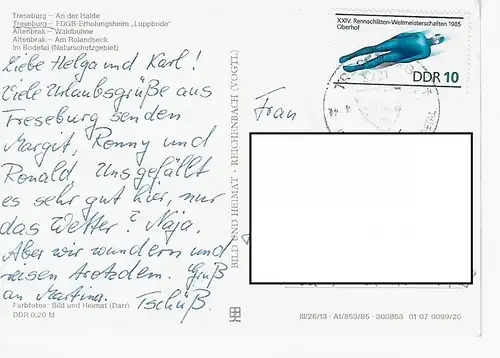 Treseburg – An der Halde
Treseburg – FDGB-Erholungsheim „Luppbode"
Altenbrak – Waldbühne
Altenbrak – Am Rolandseck
Im Bodetal (Naturschutzgebiet)
Liebe Helga und Karl!
Viele Urlaubsgrüße aus
Treseburg senden
Margit, Ronny und
Ronald. Uns gefällt
es sehr gut hier, nur
das Wetter? Naja.
Aber wir wandern und
reisen trotzdem. Gruß
an Martina. Tschüß.
Farbfotos: Bild und Heimat (Darr)
DDR 0,20 M
BILD UND HEIMAT · REICHENBACH (VOGTL)
XXIV. Rennschlitten-Weltmeisterschaften 1985
Oberhof
DDR 10
Frau
III/26/13 · A1/853/85 · 360853 01 07 0099/20